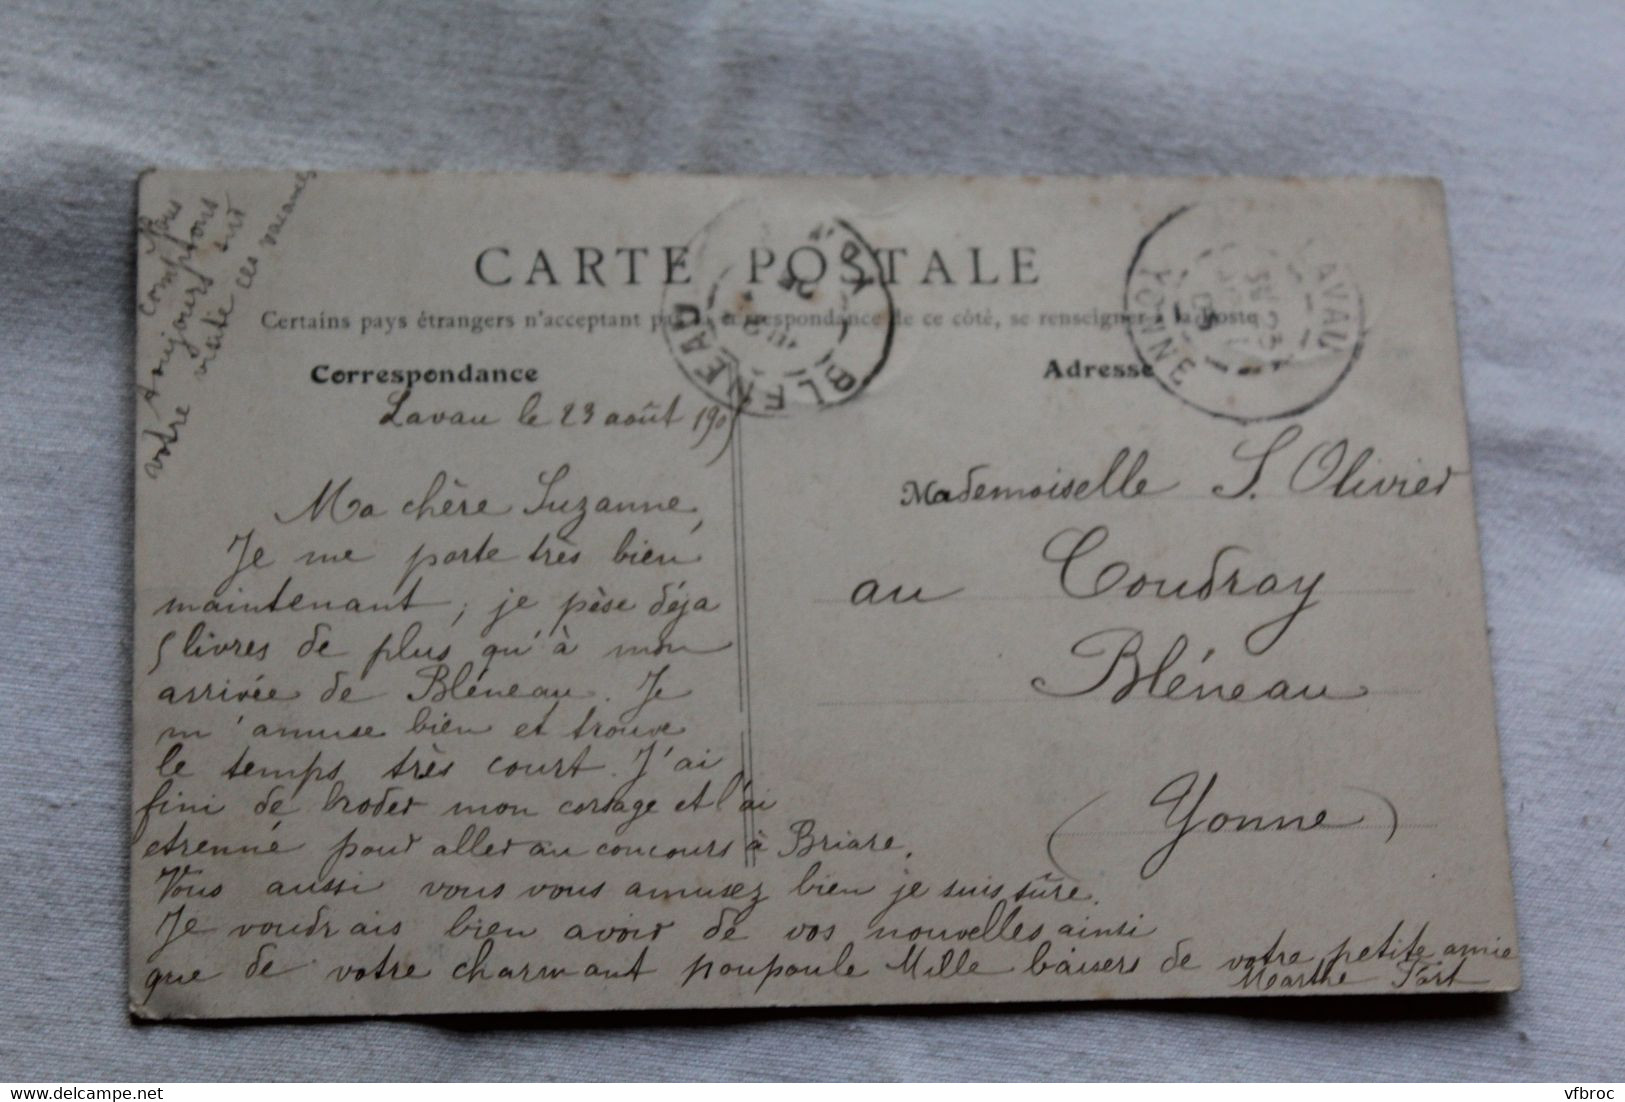 Nous
comptons
toujours sur
votre visite
ces vacances
CARTE POSTALE
Certains pays étrangers n'acceptant pas la correspondance de ce côté, se renseigner à la Poste
Correspondance
Adresse
BLÉNEAU
LAVAU
YONNE
Lavau le 23 août 190
Ma chère Suzanne,
Je me porte très bien
maintenant, je pèse déja
5 livres de plus qu'à mon
arrivée de Bléneau. Je
m'amuse bien et trouve
le temps très court. J'ai
fini de broder mon corsage et l'ai
etrenné pour aller au concours à Briare.
Vous aussi vous vous amusez bien je suis sûre.
Je voudrais bien avoir de vos nouvelles ainsi
que de votre charmant poupoule Mille baisers de votre petite amie
Marthe
Mademoiselle S. Olivier
au Coudray
Bléneau
(Yonne)
delcampe.net
vfbroc